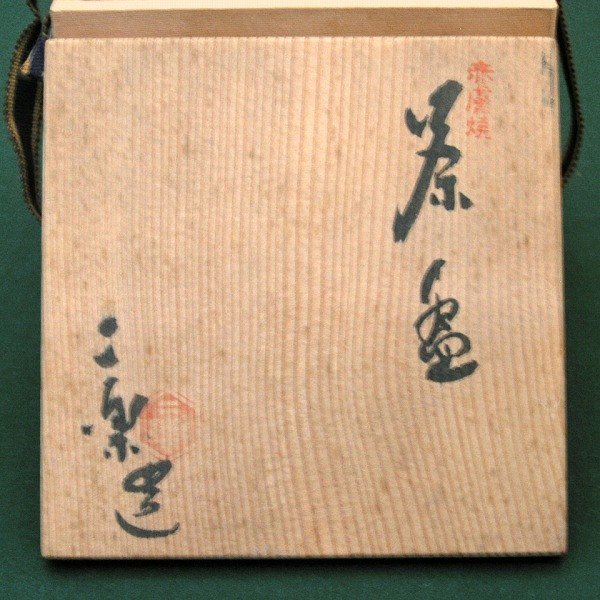 赤膚焼
茶盌
二楽造